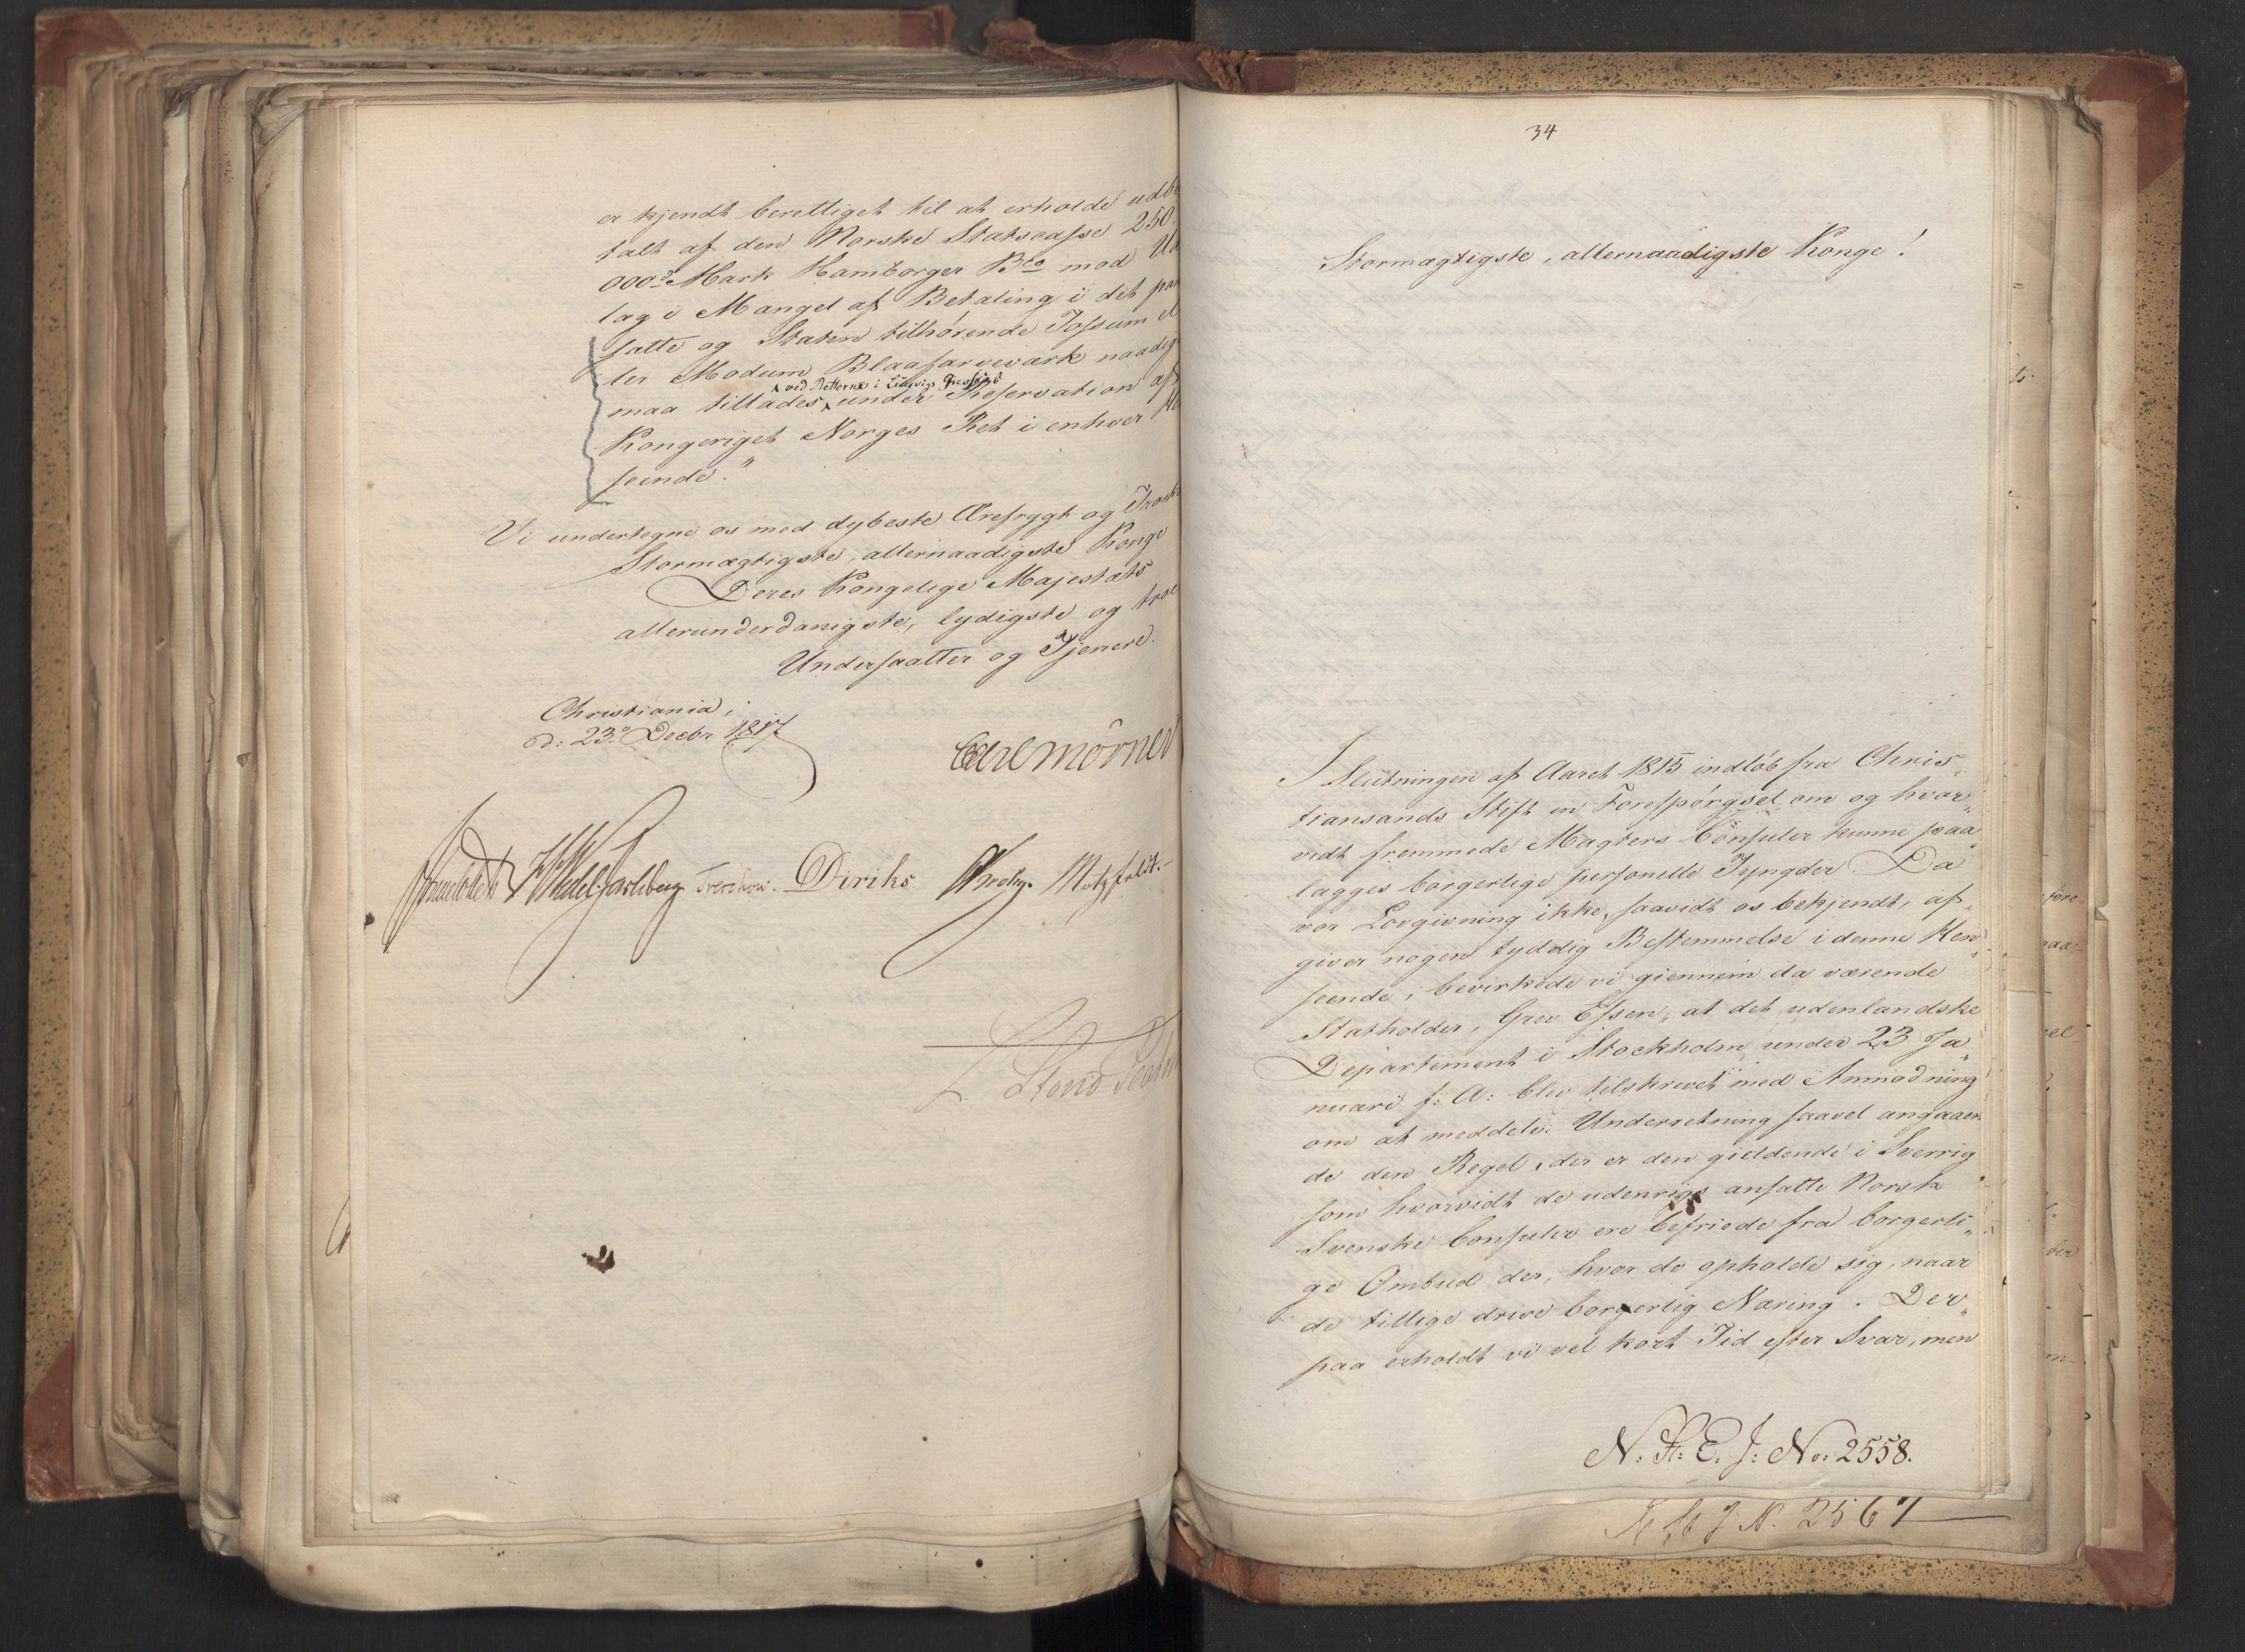 er kjendt berettiget til at erholde udbe
talt af den Norske Statscasse 250,
000 Mark Hamborger Bco mod Ud
lag i Mangel af Betaling i det pant
satte og Staten tilhørende Fossum el
ler Modum Blaafarveværk naadigst
ved Retterne i
maa tillades, under Reservation af
Kongeriget Norges Ret i enhver Hen
seende."
Vi undertegne os med dybeste Ærefrygt og Trosk
Stormægtigste, allernaadigste Konge
Deres Kongelige Majestæts
allerunderdanigste, lydigste og troe
Undersaatter og Tjenere.
Christiania,
d: 23de Decbr 1817
Carl Mörner
Sommerhielm HWedel Jarlsberg Treschow. Diriks. Krohg. Motzfeldt.
L. Stoud Platou
34
Stormægtigste, allernaadigste Konge!
I Slutningen af Aaret 1815 indløb fra Chris„
tiansands Stift en Forespørgsel om og hvor„
vidt fremmede Magters Consuler kunne paa„
lægges borgerlige personelle Tyngder Da
vor Lovgivning ikke, saavidt os bekjendt, af„
giver nogen tydelig Bestemmelse i denne Hen„
seende, bevirkede vi giennem da værende
Statholder, Grev Essen, at det udenlandske
Departement i Stockholm under 23 Ja„
nuari f: A: blev tilskrevet med Anmodning
om at meddele Underretning saavel angaaen
de den Regel, der er den gieldende i Sverrig
som hvorvidt de udenrigs ansatte Norsk
Svenske Consuler ere befriede fra borgerli„
ge Ombud der, hvor de opholde sig, naar
de tillige drive borgerlig Næring. Der„
paa erholdt vi vel kort Tid efter Svar, men
N: St: E. J: No: 2558.
J. N. 2567